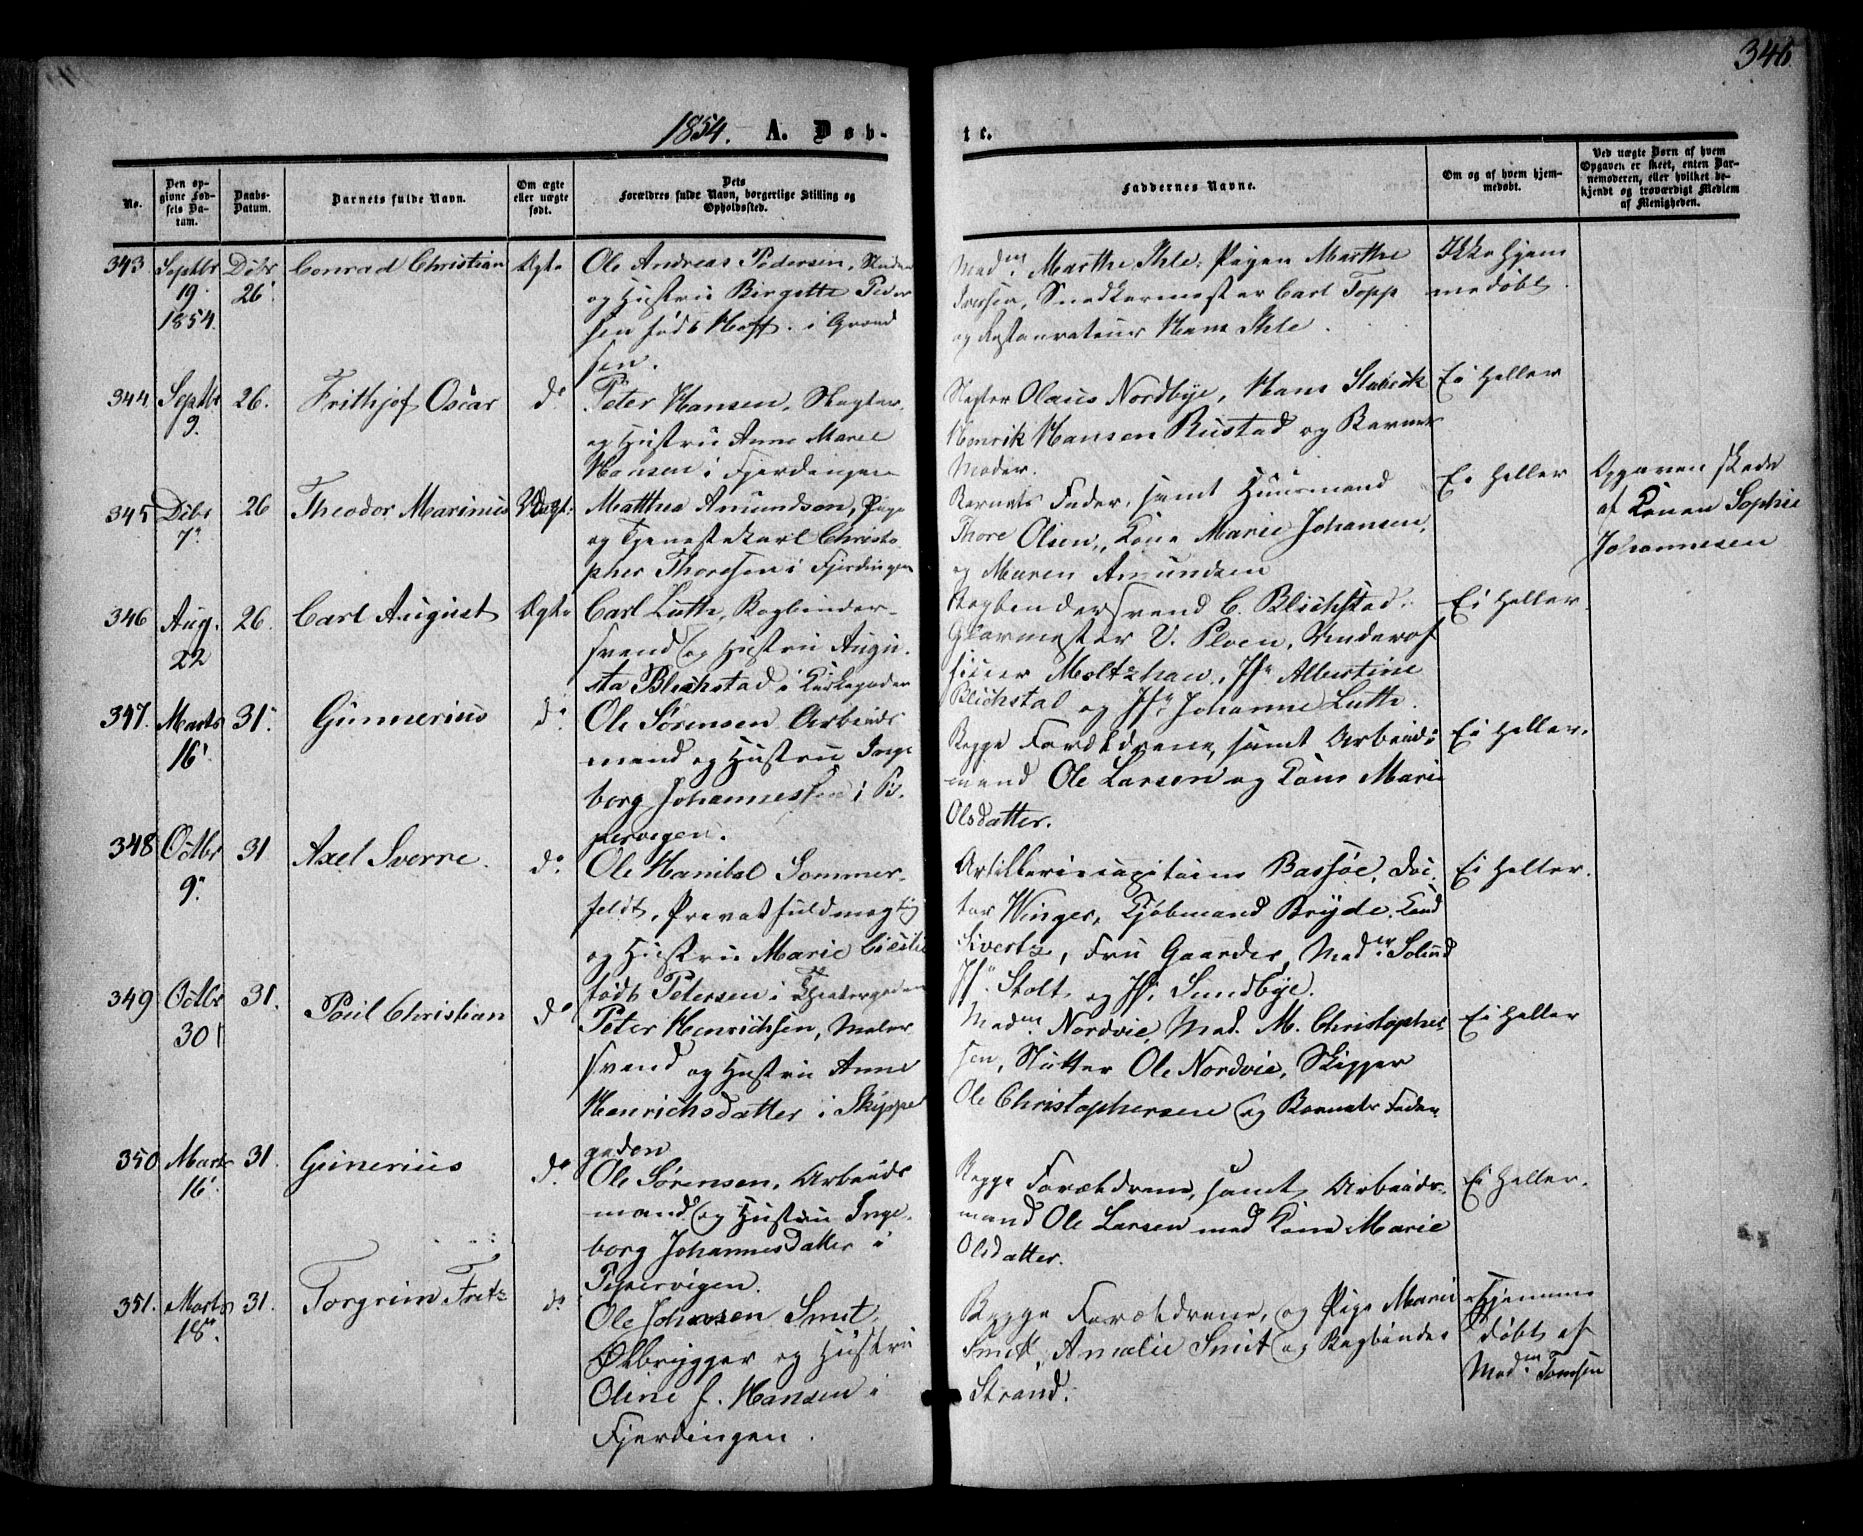 346
1854. A. Døb-
te.
No.
Den opgivne Fødsels Datum.
Daabs-Datum.
Barnets fulde Navn.
Om ægte eller uægte født.
Dets Forældres fulde Navn, borgerlige Stilling og Opholdssted.
Faddernes Navne.
Om og af hvem hjemmedøbt.
Ved uægte Børn af hvem Opgaven er skeet, enten Barnemoderen, eller hvilket bekjendt og troværdigt Medlem af Menigheden.
343 Septbr 19. 1854. Dcbr 26. Conrad Christian Ægte
Ole Andreas Pedersen,
og Hustru Birgitte Peder
sen født Hoff. i Grønd
sen.
Madm. Marthe Ihle, Pigen Marthe
Iversen, Snedkermester Carl Topp
og Restaurateur Hans Ihle.
Ikke hjem
medøbt.
344. Septbr 9. 26. Frithjof Oscar do
Peter Hansen, Slagter,
og Hustru Anne Marie
Hansen i Fjerdingen
Slagter Olaus Nordbye, Hans Stabæk
Henrik Hansen Rustad og Barnets
Moder.
Ei heller
345 Dcbr 7. 26 Theodor Marinius Uægt:
Matthea Amundsen, Pige
og Tjenestekarl Christo
pher Thoresen i Fjerdingen
Barnets Fader, samt Huusmand
Thore Olsen, Kone Marie Johansen,
og Maren Amundsen
Ei heller
Opgaven skede
af Konen Sophie
Johannesen
346 Aug. 22 26. Carl August Ægte
Carl Luth, Bogbinder-
svend og Hustru Augu
sta Blichstad i Kirkegaden
Bogbindersvend C. Blichstad,
Glarmester V. Ploen, Underof
ficier Moltzhau, Jfr Albertine
Blichstad og Jfr. Johanne Luth.
Ei heller
347. Marts 16 31. Gunnerius do
Ole Sørensen Arbeids
mand og Hustru Inge
borg Johannessen i Pi
pervigen.
Begge Forældrene, samt Arbeids
mand Ole Larsen og Kone Marie
Olsdatter.
Ei heller.
348 Octbr 9. 31 Axel Sverre. do
Ole Hanibal Sommer-
feldt, Privatfuldmægtig
og Hustru Marie Cicilie
født Petersen i Theatergaden
Artillericapitaine Bassøe, Doc
tor Winger, Kjøbmand Bryde, Cand
Sivertz, Fru Gaarder, Madm. Solund
Jfr. Stolt og Jfr. Sundbye.
Ei heller.
349 Octbr 30 31. Poul Christian do
Peter Henrichsen, Maler
svend og Hustru Anne
Henrichsdatter i Skipper
gaden
Madm. Nordvie, Mad. M. Christopher
sen, Slutter Ole Nordvie, Skipper
Ole Christophersen og Barnets Fader
Ei heller
350 Marts 16 31. Gunerius do
Ole Sørensen, Arbeids
mand og Hustru Inge-
borg Johannesdatter i
Pipervigen.
Begge Forældrene, samt Arbeids-
mand Ole Larsen med Kone Marie
Olsdatter.
Ei heller.
351. Marts 18 31. Torgrim Fritz do
Ole Johansen Smit,
Ølbrygger og Hustru
Oline f. Hansen i
Fjerdingen.
Begge Forældrene, og Pige Marie
Smit, Amalie Smit og Bogbinder
Strand.
Hjemme
døbt af
Madm. Tomsen